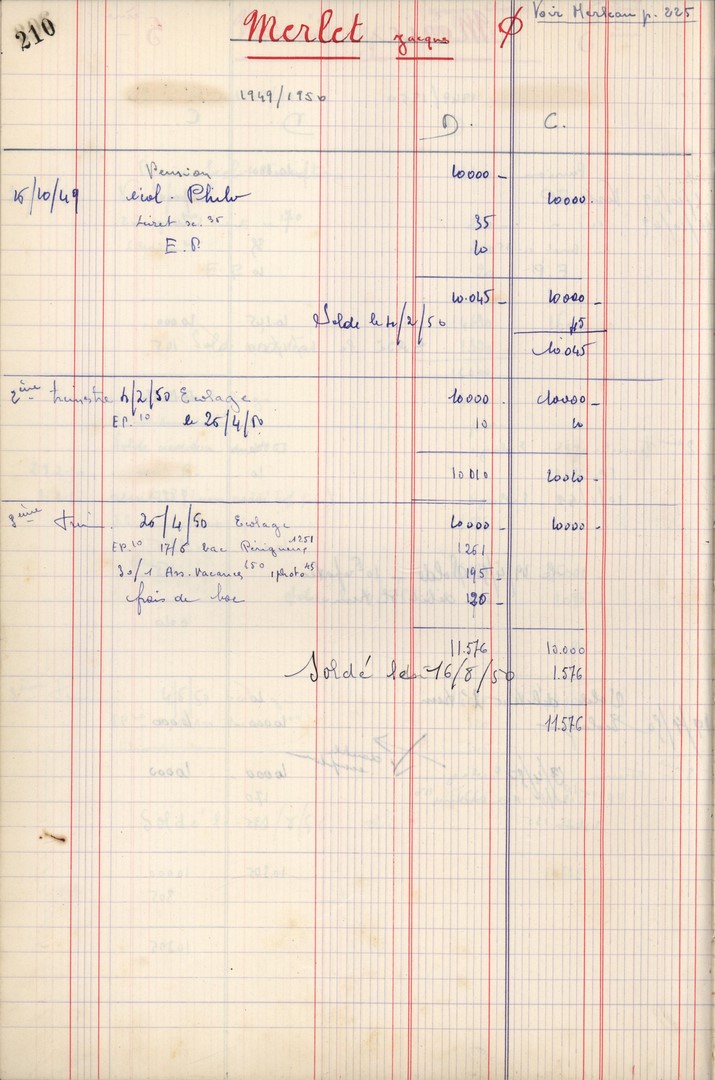 210 Merlet Jacques Voir Merleau p. 225
1949/1950
D. C.
Pension 10000 -
15/10/49 écol. Philo 10000.
Livret sc. 35 35
E.P. 10
10.045 - 10000 -
Solde le 4/2/50 45
10045
2ème trimestre 4/2/50 Ecolage 10000 . 10000 -
EP. 10 le 25/4/50 10 10
10010 10010 -
3ème Trim. 25/4/50 Ecolage 10000 - 10000 -
EP. 10 17/5 bac Périgueux 1251 1261
30/1 Ass. Vacances 150 1 photo 45 195 -
frais de bac 120 -
11.576 10.000
Soldé le 16/8/50 1.576
11576